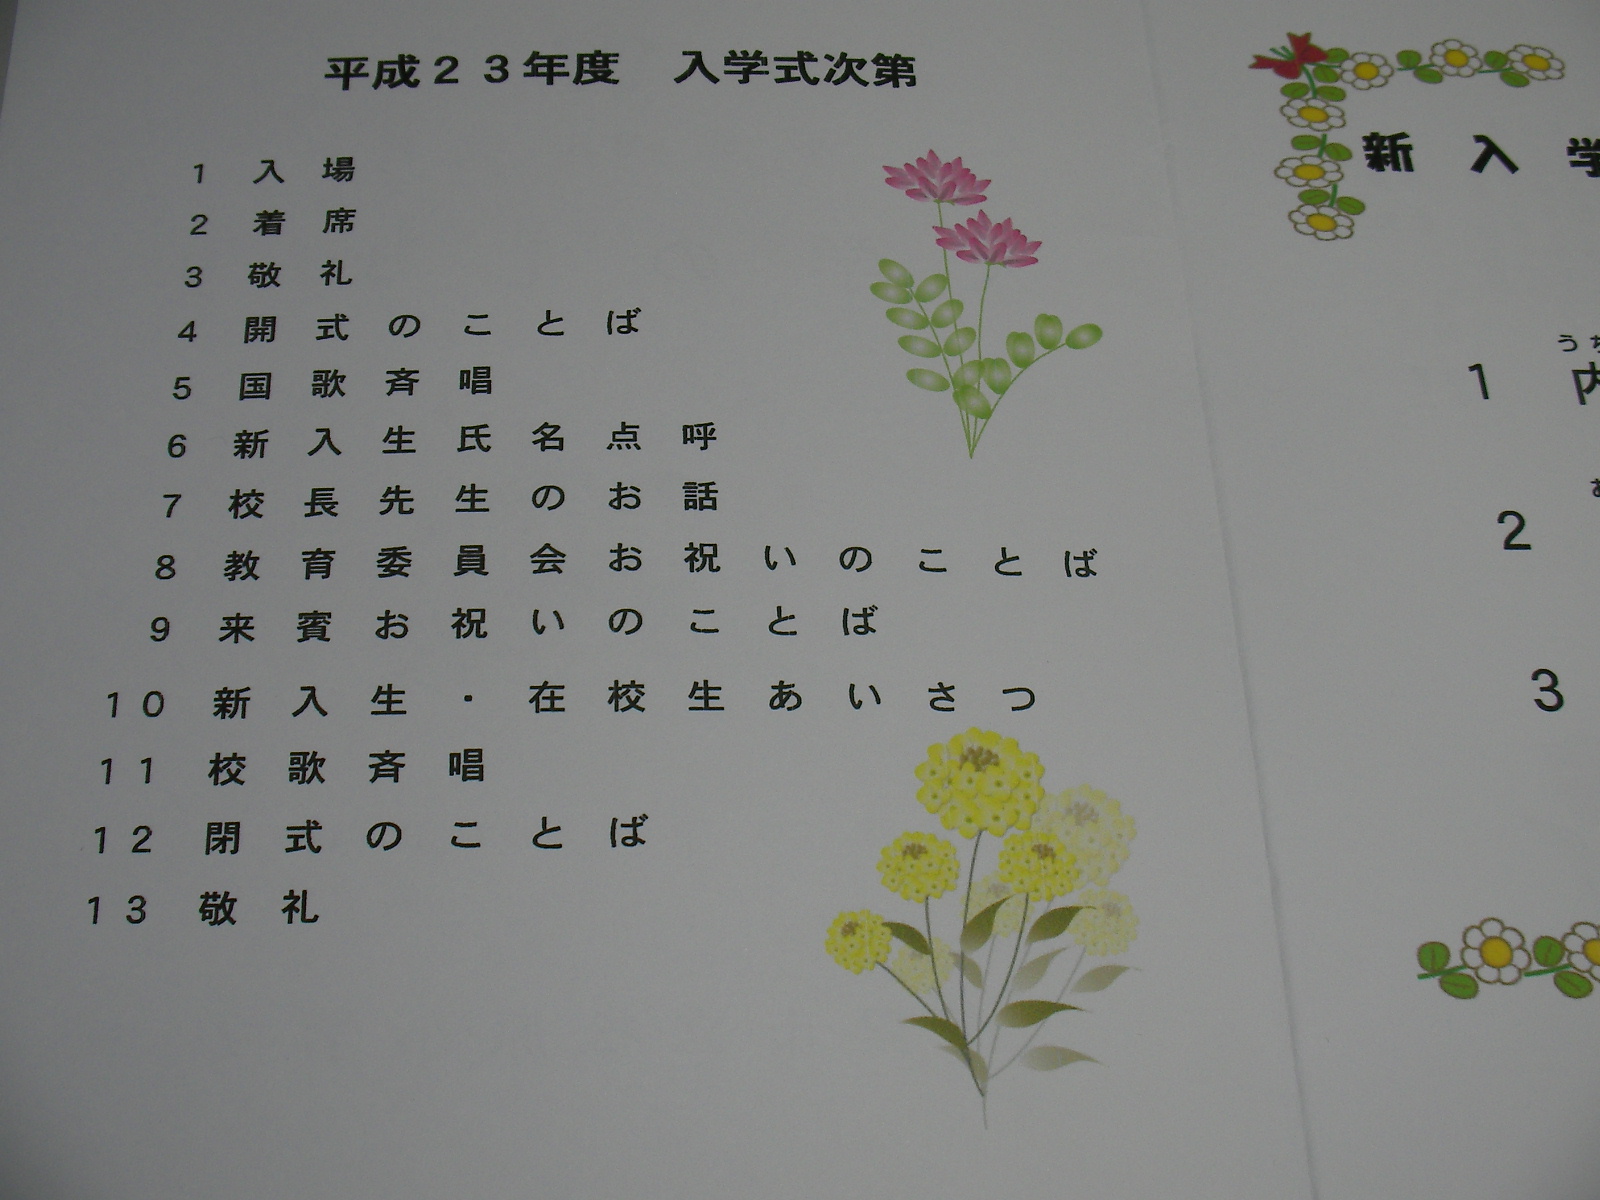 平成２３年度　入学式次第
１　入場
２　着席
３　敬礼
４　開式のことば
５　国歌斉唱
６　新入生氏名点呼
７　校長先生のお話
８　教育委員会お祝いのことば
９　来賓お祝いのことば
１０　新入生・在校生あいさつ
１１　校歌斉唱
１２　閉式のことば
１３　敬礼
新入学
うち
１　内
２
３